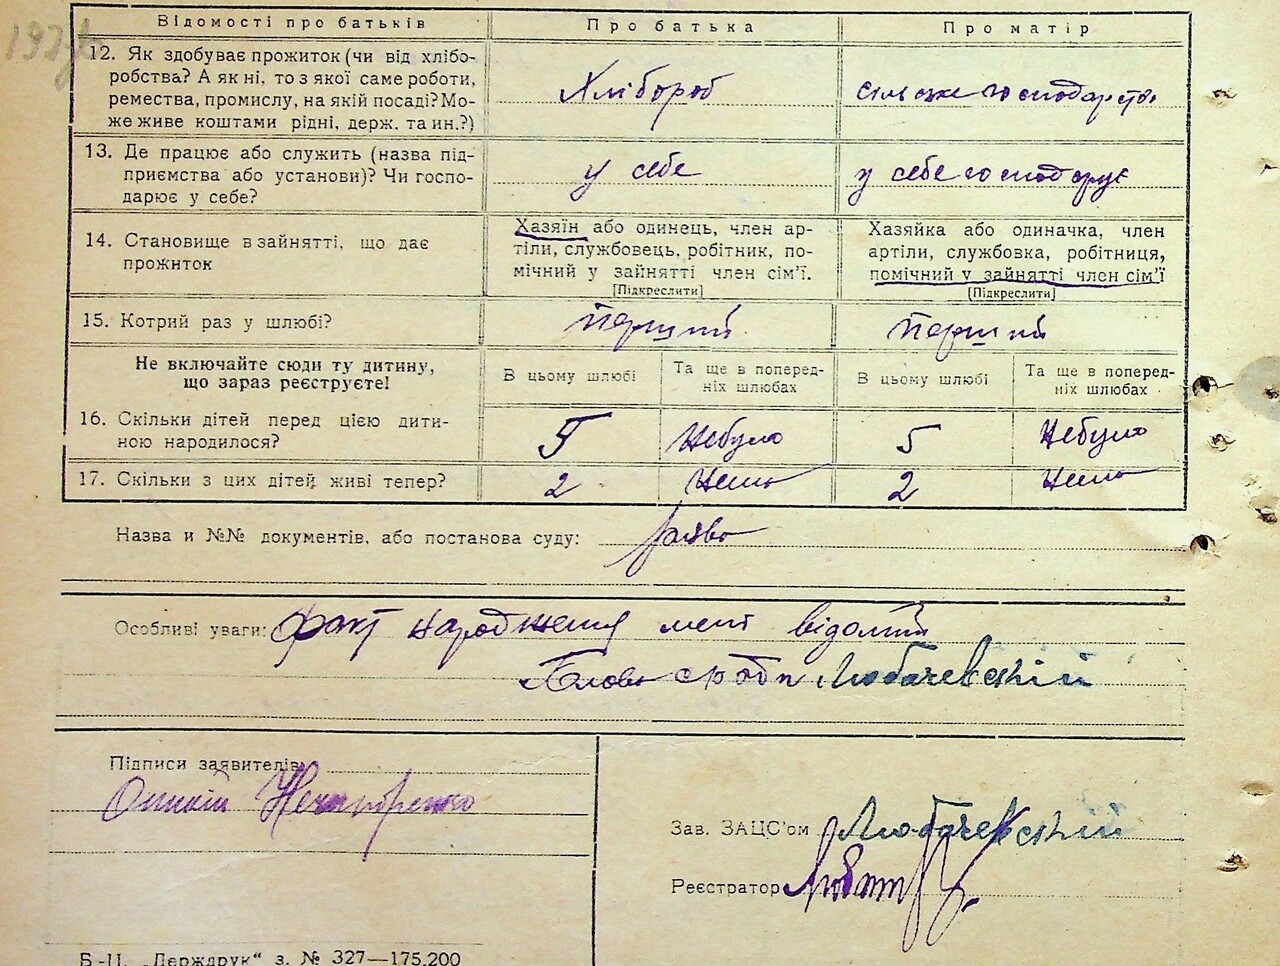 Відомості про батьків
Про батька
Про матір
12. Як здобуває прожиток (чи від хлібо-
робства? А як ні, то з якої саме роботи,
ремества, промислу, на якій посаді? Мо-
же живе коштами рідні, держ. та ин.?)
Хлібороб
сільське господарство
13. Де працює або служить (назва під-
приємства або установи)? Чи госпо-
дарює у себе?
у себе
у себе господарує
14. Становище в зайнятті, що дає
прожиток
Хазяїн або одинець, член ар-
тіли, службовець, робітник, по-
мічний у зайнятті член сім'ї.
[Підкреслити]
Хазяйка або одиначка, член
артіли, службовка, робітниця,
помічний у зайнятті член сім'ї
[Підкреслити]
15. Котрий раз у шлюбі?
Перший
Перший
Не включайте сюди ту дитину,
що зараз реєструєте!
В цьому шлюбі
Та ще в поперед-
ніх шлюбах
В цьому шлюбі
Та ще в поперед-
ніх шлюбах
16. Скільки дітей перед цією дити-
ною народилося?
5
Небуло
5
Небуло
17. Скільки з цих дітей живі тепер?
2
Нема
2
Нема
Назва и №№ документів, або постанова суду:
Особливі уваги: Факт народження мені відомий
Любачевский
Підписи заявителів
Нечипоренко
Зав. ЗАЦС'ом Любачевский
Реєстратор
Б-Ц. „Держдрук“ з. № 327—175.200